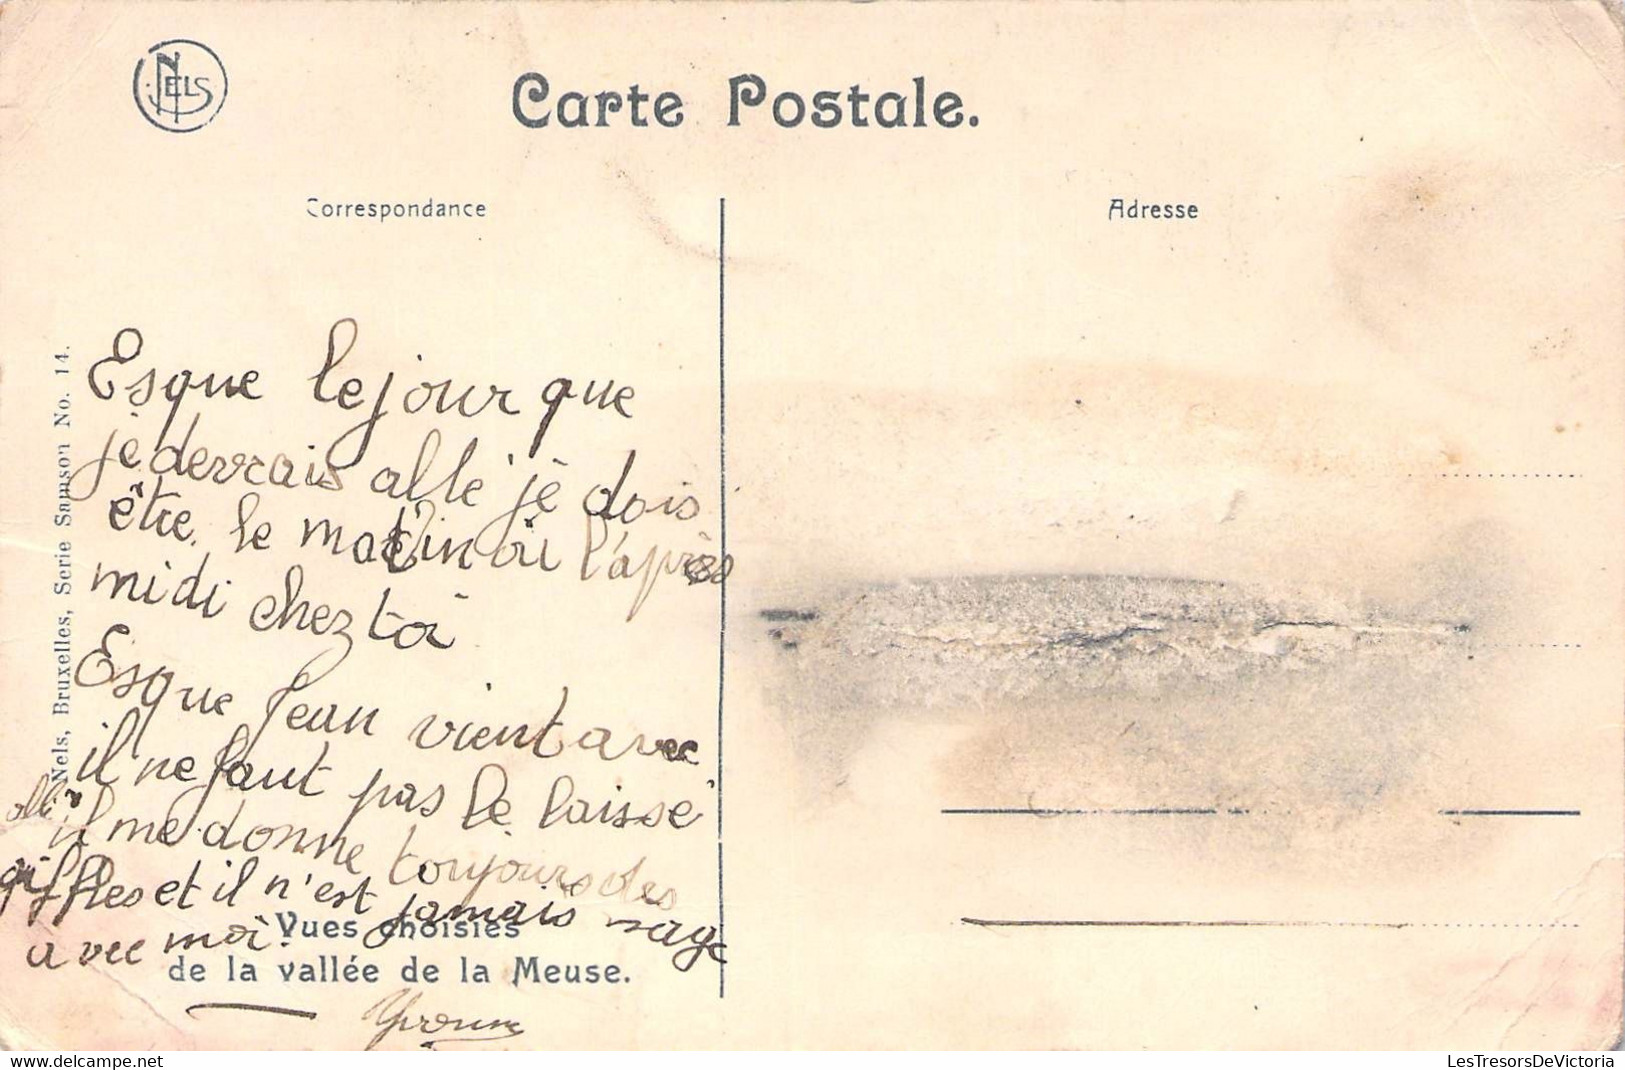 NELS
Carte Postale.
Correspondance
Adresse
Nels, Bruxelles, Serie Samson No. 14.
Esque le jour que
je devrais allé je dois
être le matin ou l'après
midi chez toi
Esque Jean vient avec
il ne faut pas le laissé
allé il me donne toujours des
giffles et il n'est jamais sage
avec moi.
Vues choisies
de la vallée de la Meuse.
Yvonne
LesTresorsDeVictoria